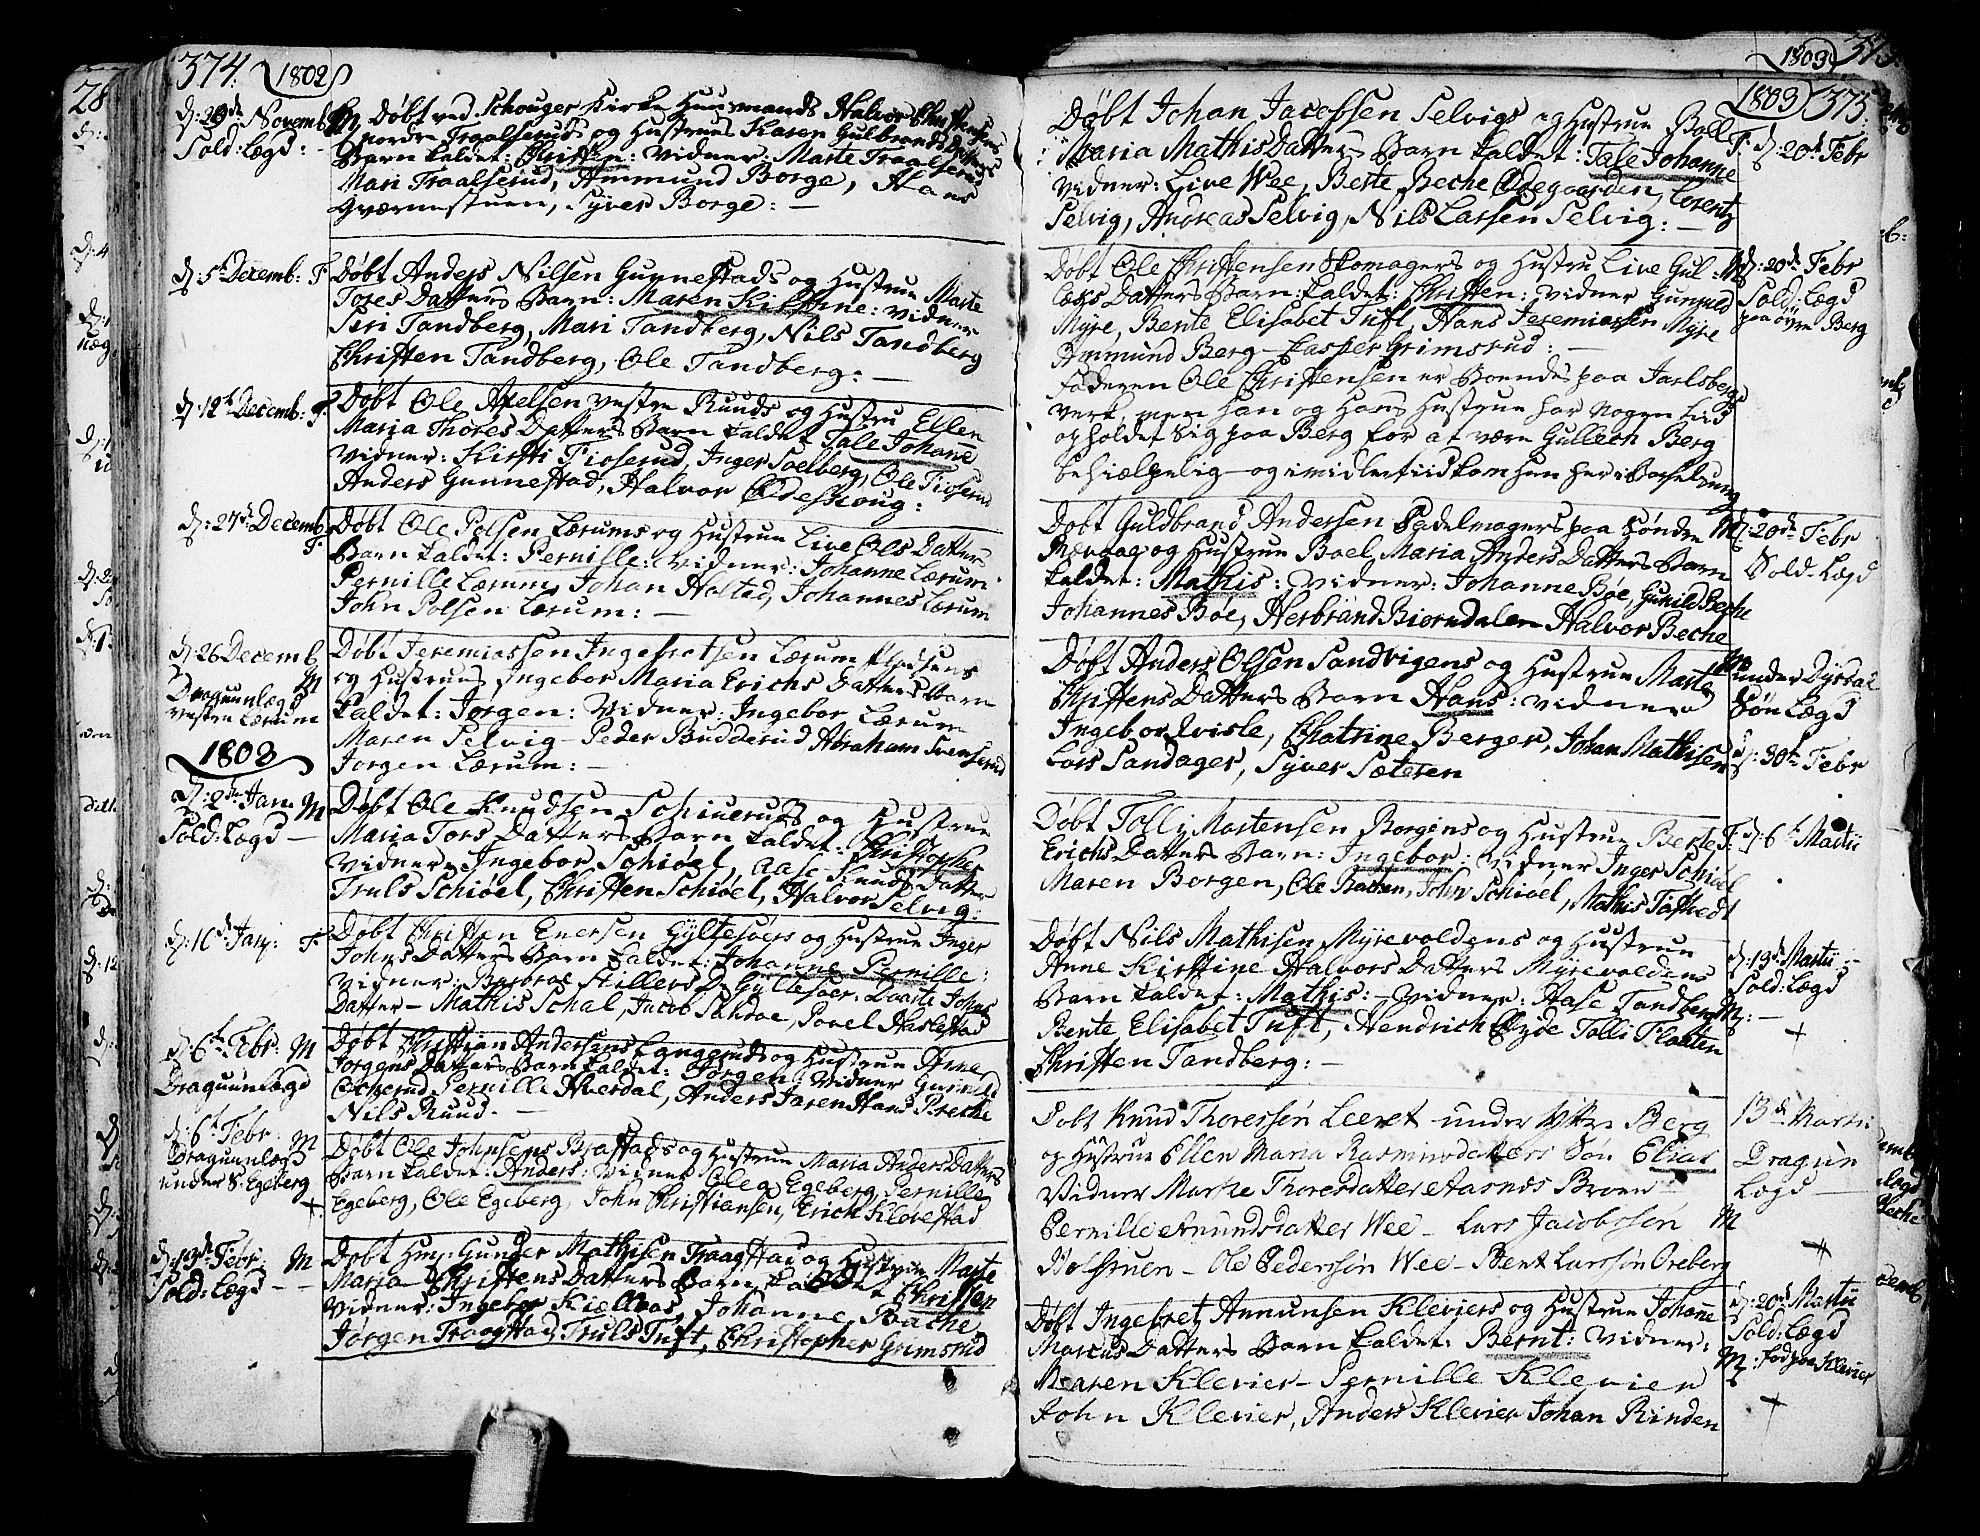 374.
1802
d: 29de Novemb: M
Sold: Lægd: -
Døbt ved Schouger Kirke Huusmands Halvor Christensens
nordre Traalseruds og Hustrues Karen Gulbrands Datters
Barn kaldet: Christen: Vidner: Marte Traalserud
Mari Traalserud, Ammund Borge, Hans
Qværnestuen, Syver Borge: -
d: 5te Decemb: F.
Døbt Anders Nilsen Gunnestads og Hustrue Marte
Tores Datters Barn: Maren Kirstine: Vidner
Siri Tandberg, Mari Tandberg, Nils Tandberg
Christen Tandberg, Ole Tandberg: -
d: 12te Decemb: F.
Døbt Ole Axelsen vestre Ruuds og Hustru Ellen
Maria Thores Datters Barn kaldet Tale Johanne
Vidner: Kirsti Fioserud, Inger Soelberg, Ole Fioserud
Anders Gunnestad, Halvor Ødesskoug:
d: 27de Decemb:
F.
Døbt Ole Polsen Lærums og Hustrue Live Ols Datters
Barn kaldet: Pernille: Vidner: Johanne Lærum
Pernille Lærum, Johan Holstad, Johannes Lærum
John Polsen Lærum: -
d: 26 Decemb
M
Dragunlægd
vestre Lærum
Døbt Jeremiassen Ingebretsen Lærum
og Hustrues Ingebor Maria Erichs Datters Barn
kaldet: Jørgen: Vidner: Ingebor Lærum
Maren Selvig - Peder Budderud Abraham Svenserud
Jørgen Lærum: -
1803
d: 2den Jan. M
Sold: Lægd -
Døbt Ole Knudsen Schiueruds og Hustrue
Maria Tors Datters Barn kaldet: Christopher
Vidner: Ingebor Schiøel, Aase Knuds Datter
Truls Schiøel, Christen Schiøel, Halvor Selvig:
d: 16de Jan: F.
Døbt Christen Enersen Gyltesøers og Hustrue Inger
Johns Datters Barn kaldet: Johanne Pernille:
Vidner: Barbroe Gyltesøer, Johns
Datter - Mathis Schal, Jacob Sandøe, Povel Haslestad
d: 6te Febr: M
Dragunlægd
Døbt Christian Andersens Langeruds og Hustrue Anne
Jørgens Datters Barn kaldet: Jørgen: Vidner Gunild
Ocherud, Pernille Hverdal, Anders Jaren Hans Breche
Nils Ruud. -
d: 6te Febr:
M
Dragunlægd
under S. Egeberg
+
Døbt Ole Johnsens Brastads og Hustrue Maria Anders Datters
Barn kaldet: Anders: Vidner Olea Egeberg, Pernille
Egeberg, Ole Egeberg, John Christiansen, Erich Kløvestad
d: 13de Febr: M
Sold: Lægd - -
Døbt Hmd: Gunder Mathisen Fraagstad og Hustrue Marte
Maria Christens Datters Barn kaldet Christen
Vidner: Ingebor Kiellaas, Johanne Bache
Jørgen Fraagstad, Truls Tuft, Christopher Grimsrud
1803
1803 375.
Døbt Johan Jacobsen Selvigs og Hustrue Boel
Maria Mathis Datters Barn kaldet: Tale Johanne
Vidner: Live Wee, Berte Beche Ødegaarden, Lorentz
Selvig, Andreas Selvig, Nils Larsen Selvig: -
F. d: 20de Febr
Døbt Ole Christensen Skomagers og Hustru Live Gul-
lachs Datters Barn: kaldet: Christen: Vidner Gunnild
Myre, Bente Elisabet Tuft, Hans Jeremiassen Myre
Ammund Berg - Casper Grimsrud: -
Faderen Ole Christensen er Boende paa Jarlsberg
Verk, men han og hans Hustrue har nogen Tiid
opholdet sig paa Berg for at være Gullech Berg
behiælpelig - og imidlertiid kom hun her i Barselseng
M d: 20de Febr
Sold: Lægd
paa øvre Berg
Døbt Guldbrand Andersen Sadelmagers paa Søndre
Rævaag og Hustrue Boel Maria Anders Datters Barn
kaldet: Mathis: Vidner: Johanne Bøe, Gunild Beche
Johannes Bøe, Herbrand Biørndalen Halvor Beche
M d: 20de Febr
Sold-Lægd
Døbt Anders Olsen Sandvigens og Hustrue Marte
Christens Datters Barn Hans: Vidner
Ingebor Qvisle, Chatrine Berger, Johan Mathisen
Lars Sandager, Syver Sæteren
M
under Dysdal
Søn Lægd
d: 30te Febr
Døbt Tolly Mortensen Borgens og Hustrue Berte
Erichs Datters Barn: Ingebor: Vidner Inger Schiøel
Maren Borgen, Ole Raden, John Schiøel, Mathis Toftvedt
F: d: 6te Martii
Døbt Nils Mathisen Myrevoldens og Hustrue
Anne Kirstine Halvors Datters Myrevoldens
Barn kaldet: Mathis: - Vidner: Aase Tandberg
Bente Elisabet Tuft, Hendrich Eyde Tolli Floeten
Christen Tandberg: -
d: 13de Martii -
Sold: Lægd
M: -
+
Døbt Knud Thoressøn Leeret under Yttre Berg
og Hustrue Ellen Maria Rasmusdatters Søn Elias
Vidner Marthe Thoresdatter Aasnæs Broen -
Pernille Amundsdatter Wee - Lars Jacobssøn
Holstruen - Ole Pedersøn Wee - Bent Larssøn Oreberg
13de Martii
Dragun
Lægd -
M
+
Døbt Ingebret Annunsen Kleviers og Hustrue Johanne
Marcus Datters Barn kaldet: Bernt: Vidner:
Maren Klevier - Pernille Klevier
John Klevier, Anders Klevier Johan Rinden
d: 20de Martii
Sold: Lægd
M: fød paa Klevier
+